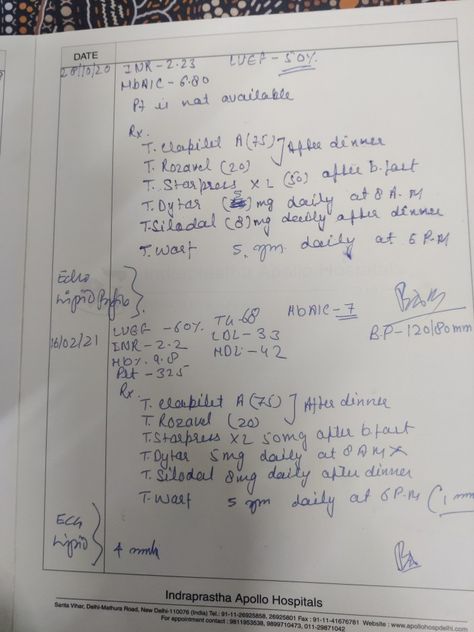 DATE
28/10/20 INR - 2.23 LVEF - 50%
HbA1C - 6.80
Pt is not available
Rx.
T. Clapilet A (75) ] After dinner
T. Rozavel (20)
T. Starpress XL (50) after b.fast
T. Dytor (5) mg daily at 8 A.M
T. Silodal (8) mg daily after dinner
T. Warf 5 mg daily at 6 P.M
Echo
Lipid Profile
HbA1C - 7
B.P - 120/80 mm
16/02/21 LVEF - 60% TG - 68
INR - 2.2 LDL - 33
Hb% 9.8 HDL - 42
Plt - 325
Rx
T. Clapilet A (75) ] After dinner
T. Rozavel (20)
T. Starpress XL 50mg after b.fast
T. Dytor 5mg daily at 8 AM
T. Silodal 8mg daily after dinner
T. Warf 5 mg daily at 6 P.M
ECG
Lipid
4
Indraprastha Apollo Hospitals
Sarita Vihar, Delhi-Mathura Road, New Delhi-110076 (India) Tel.: 91-11-26925858, 26925801 Fax : 91-11-41676781 Website : www.apollohospdelhi.com
For appointment contact : 9811953538, 9899710473, 011-29871042